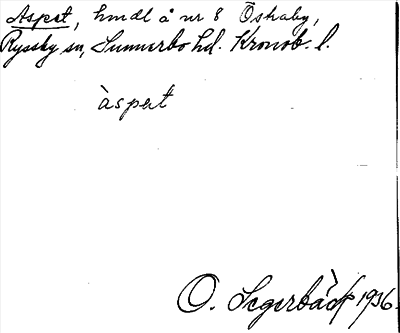 Aspet, hmdl å nr 8 Öshaby,
Ryssby sn, Sunnerbo hd. Kronob. l.
àspət
O. Segerbäck 1936.